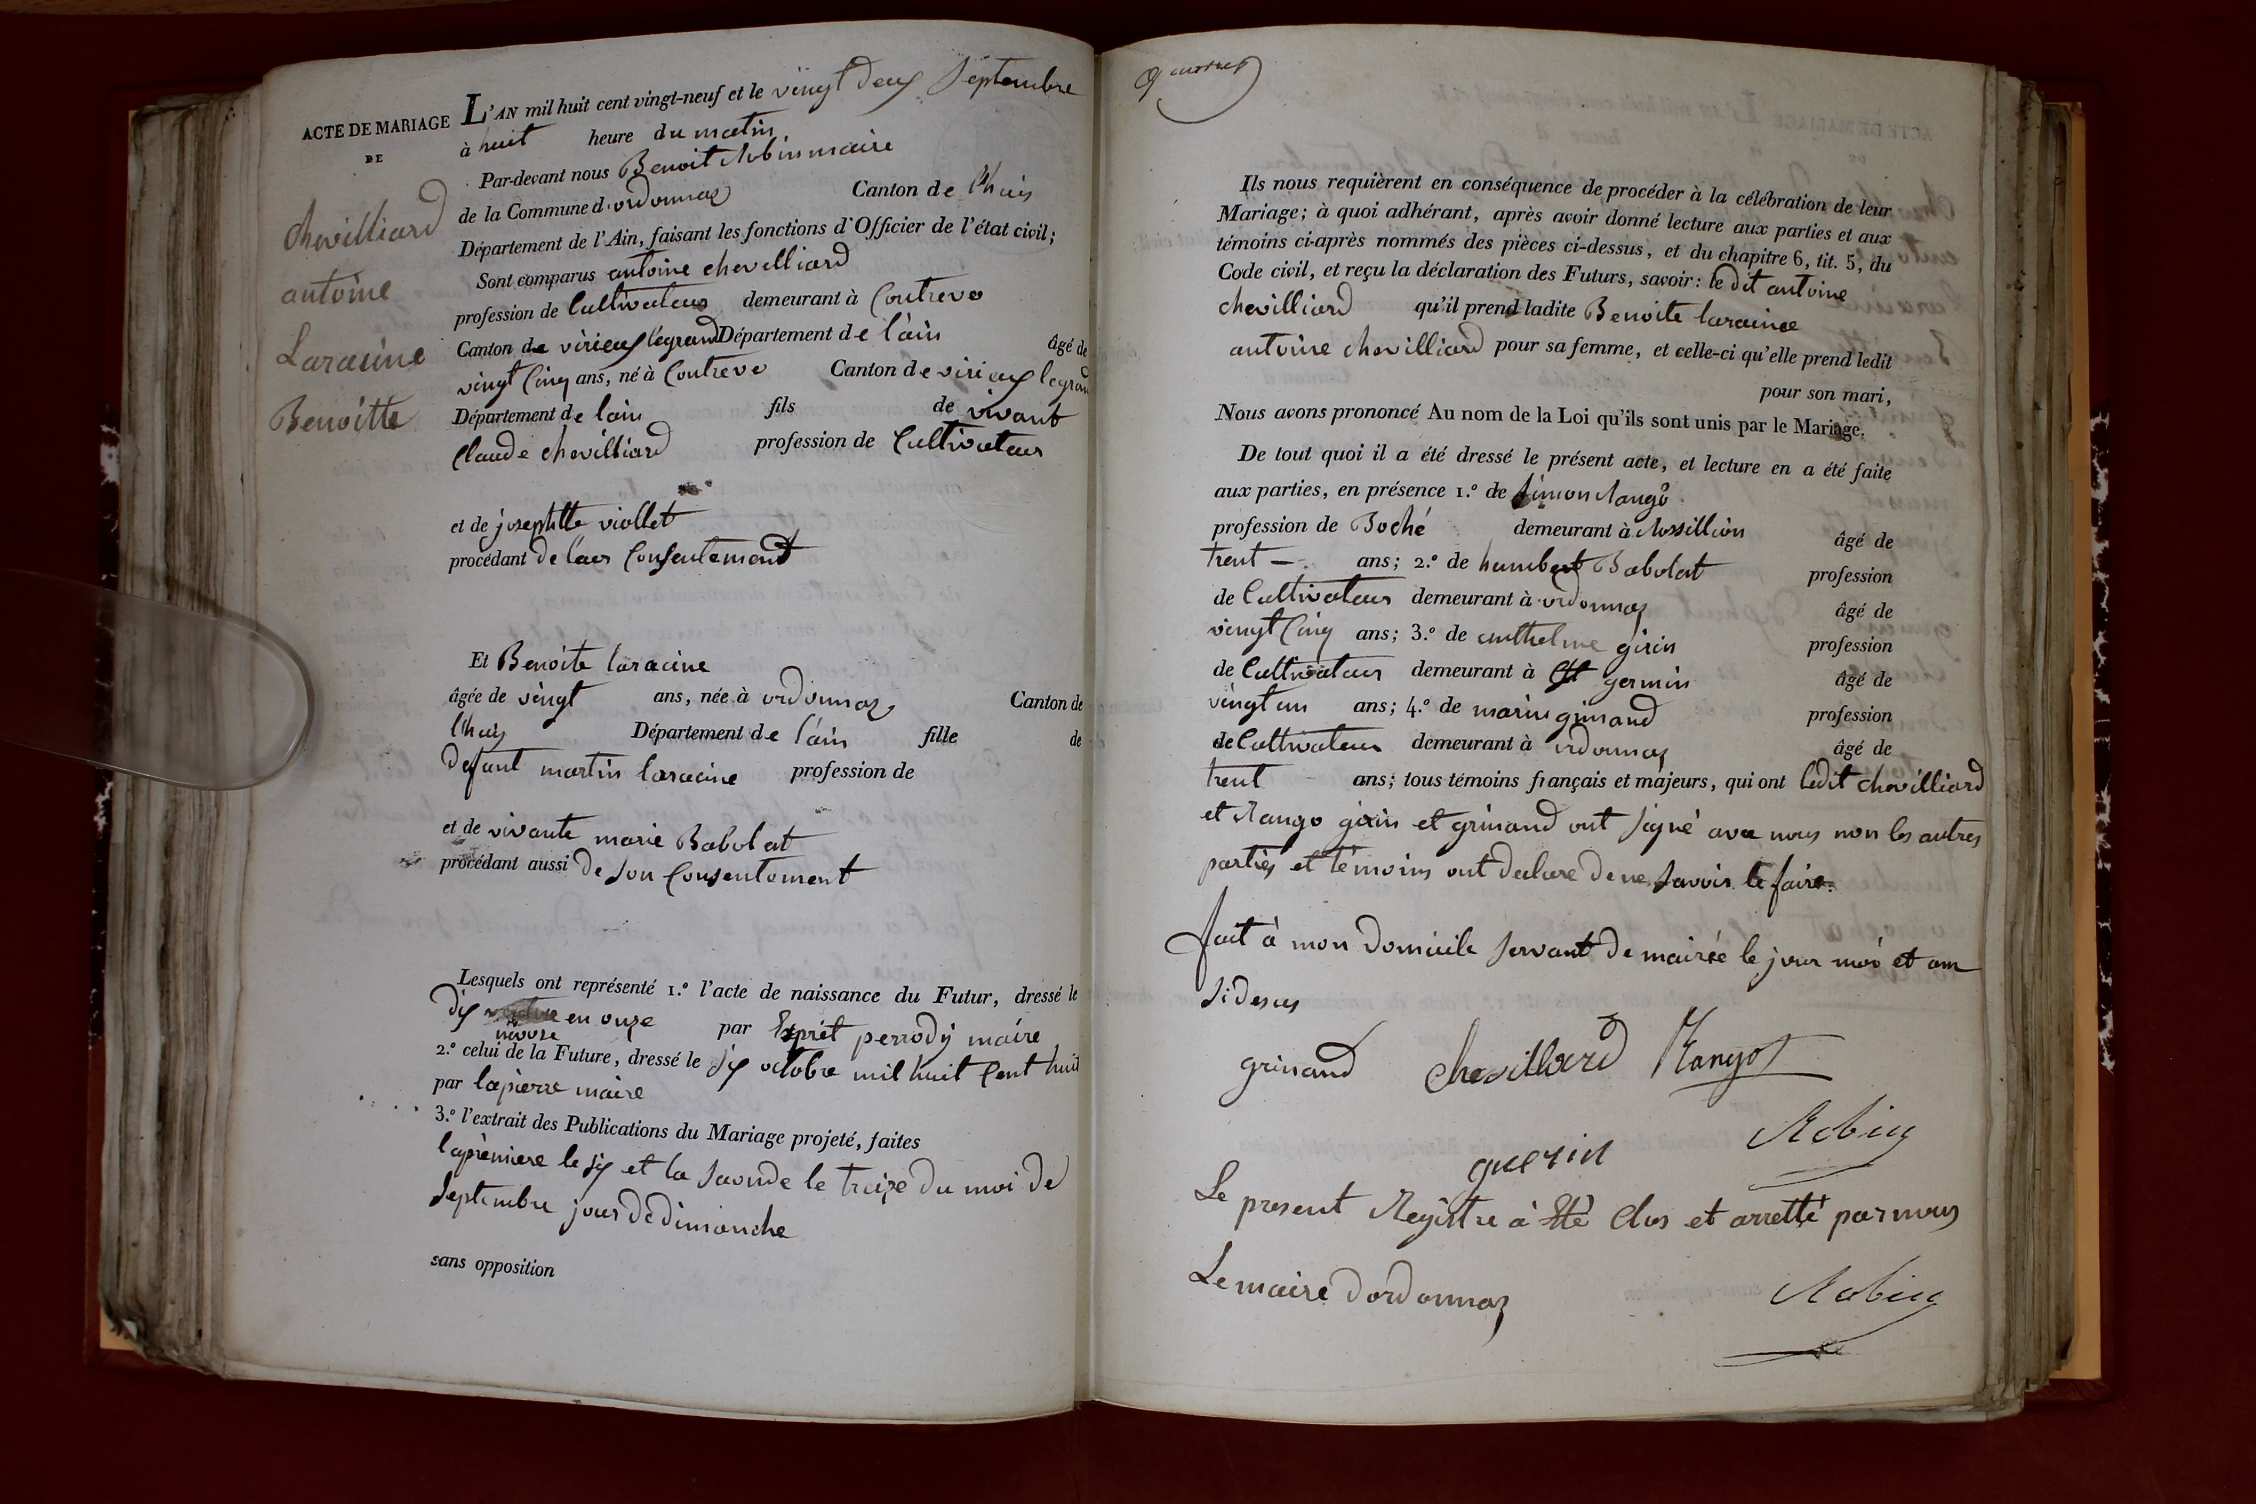 ACTE DE MARIAGE
DE
chevilliard
antoine
Laracine
Benoitte
L'AN mil huit cent vingt-neuf et le vingt deux Septembre
à huit heure du matin,
Par-devant nous Benoit Robin maire
de la Commune d'ordonnaz Canton de l'huis
Département de l'Ain, faisant les fonctions d'Officier de l'état civil;
Sont comparus antoine chevilliard
profession de Cultivateur demeurant à Contrevo
Canton de virieux legrand Département de l'ain âgé de
vingt Cinq ans, né à Contrevo Canton de virieux legrand
Département de l'ain fils de vivant
Claude chevilliard profession de Cultivateur
et de josephtte viollet
procédant de leur Consentement
Et Benoite laracine
âgée de vingt ans, née à ordonnaz Canton de
l'huis Département de l'ain fille de
defunt martin laracine profession de
et de vivante marie Babolat
procédant aussi de son Consentement
Lesquels ont représenté 1.º l'acte de naissance du Futur, dressé le
dix en onze par Esprit perrody maire
nivose
2.º celui de la Future, dressé le six octobre mil huit Cent huit
par lapierre maire
3.º l'extrait des Publications du Mariage projeté, faites
lapremiere le six et la seconde le treize du moi de
septembre jour de dimanche
sans opposition
Ils nous requièrent en conséquence de procéder à la célébration de leur
Mariage; à quoi adhérant, après avoir donné lecture aux parties et aux
témoins ci-après nommés des pièces ci-dessus, et du chapitre 6, tit. 5, du
Code civil, et reçu la déclaration des Futurs, savoir: le dit antoine
chevilliard qu'il prend ladite Benoite laracine
antoine chevilliard pour sa femme, et celle-ci qu'elle prend ledit
pour son mari,
Nous avons prononcé Au nom de la Loi qu'ils sont unis par le Mariage.
De tout quoi il a été dressé le présent acte, et lecture en a été faite
aux parties, en présence 1.º de Simon Rango
profession de Boché demeurant à Rossillion âgé de
trent — ans; 2.º de humbert Babolat profession
de Cultivateur demeurant à ordonnaz âgé de
vingt Cinq ans; 3.º de anthelme girin profession
de Cultivateur demeurant à St germin âgé de
vingt un ans; 4.º de marin grinand profession
de Cultivateur demeurant à ordonnaz âgé de
trent ans; tous témoins français et majeurs, qui ont ledit chevilliard
et Rango girin et grinand ont signé avec nous non les autres
parties et témoins ont declare de ne savoir le faire.
fait à mon domicile servant de mairée le jour moi et an
si desus
grinand chevillard Rangot
Robin
guerin
Le present Registre à été Clos et arretté par nous
Le maire d'ordonnaz Robin